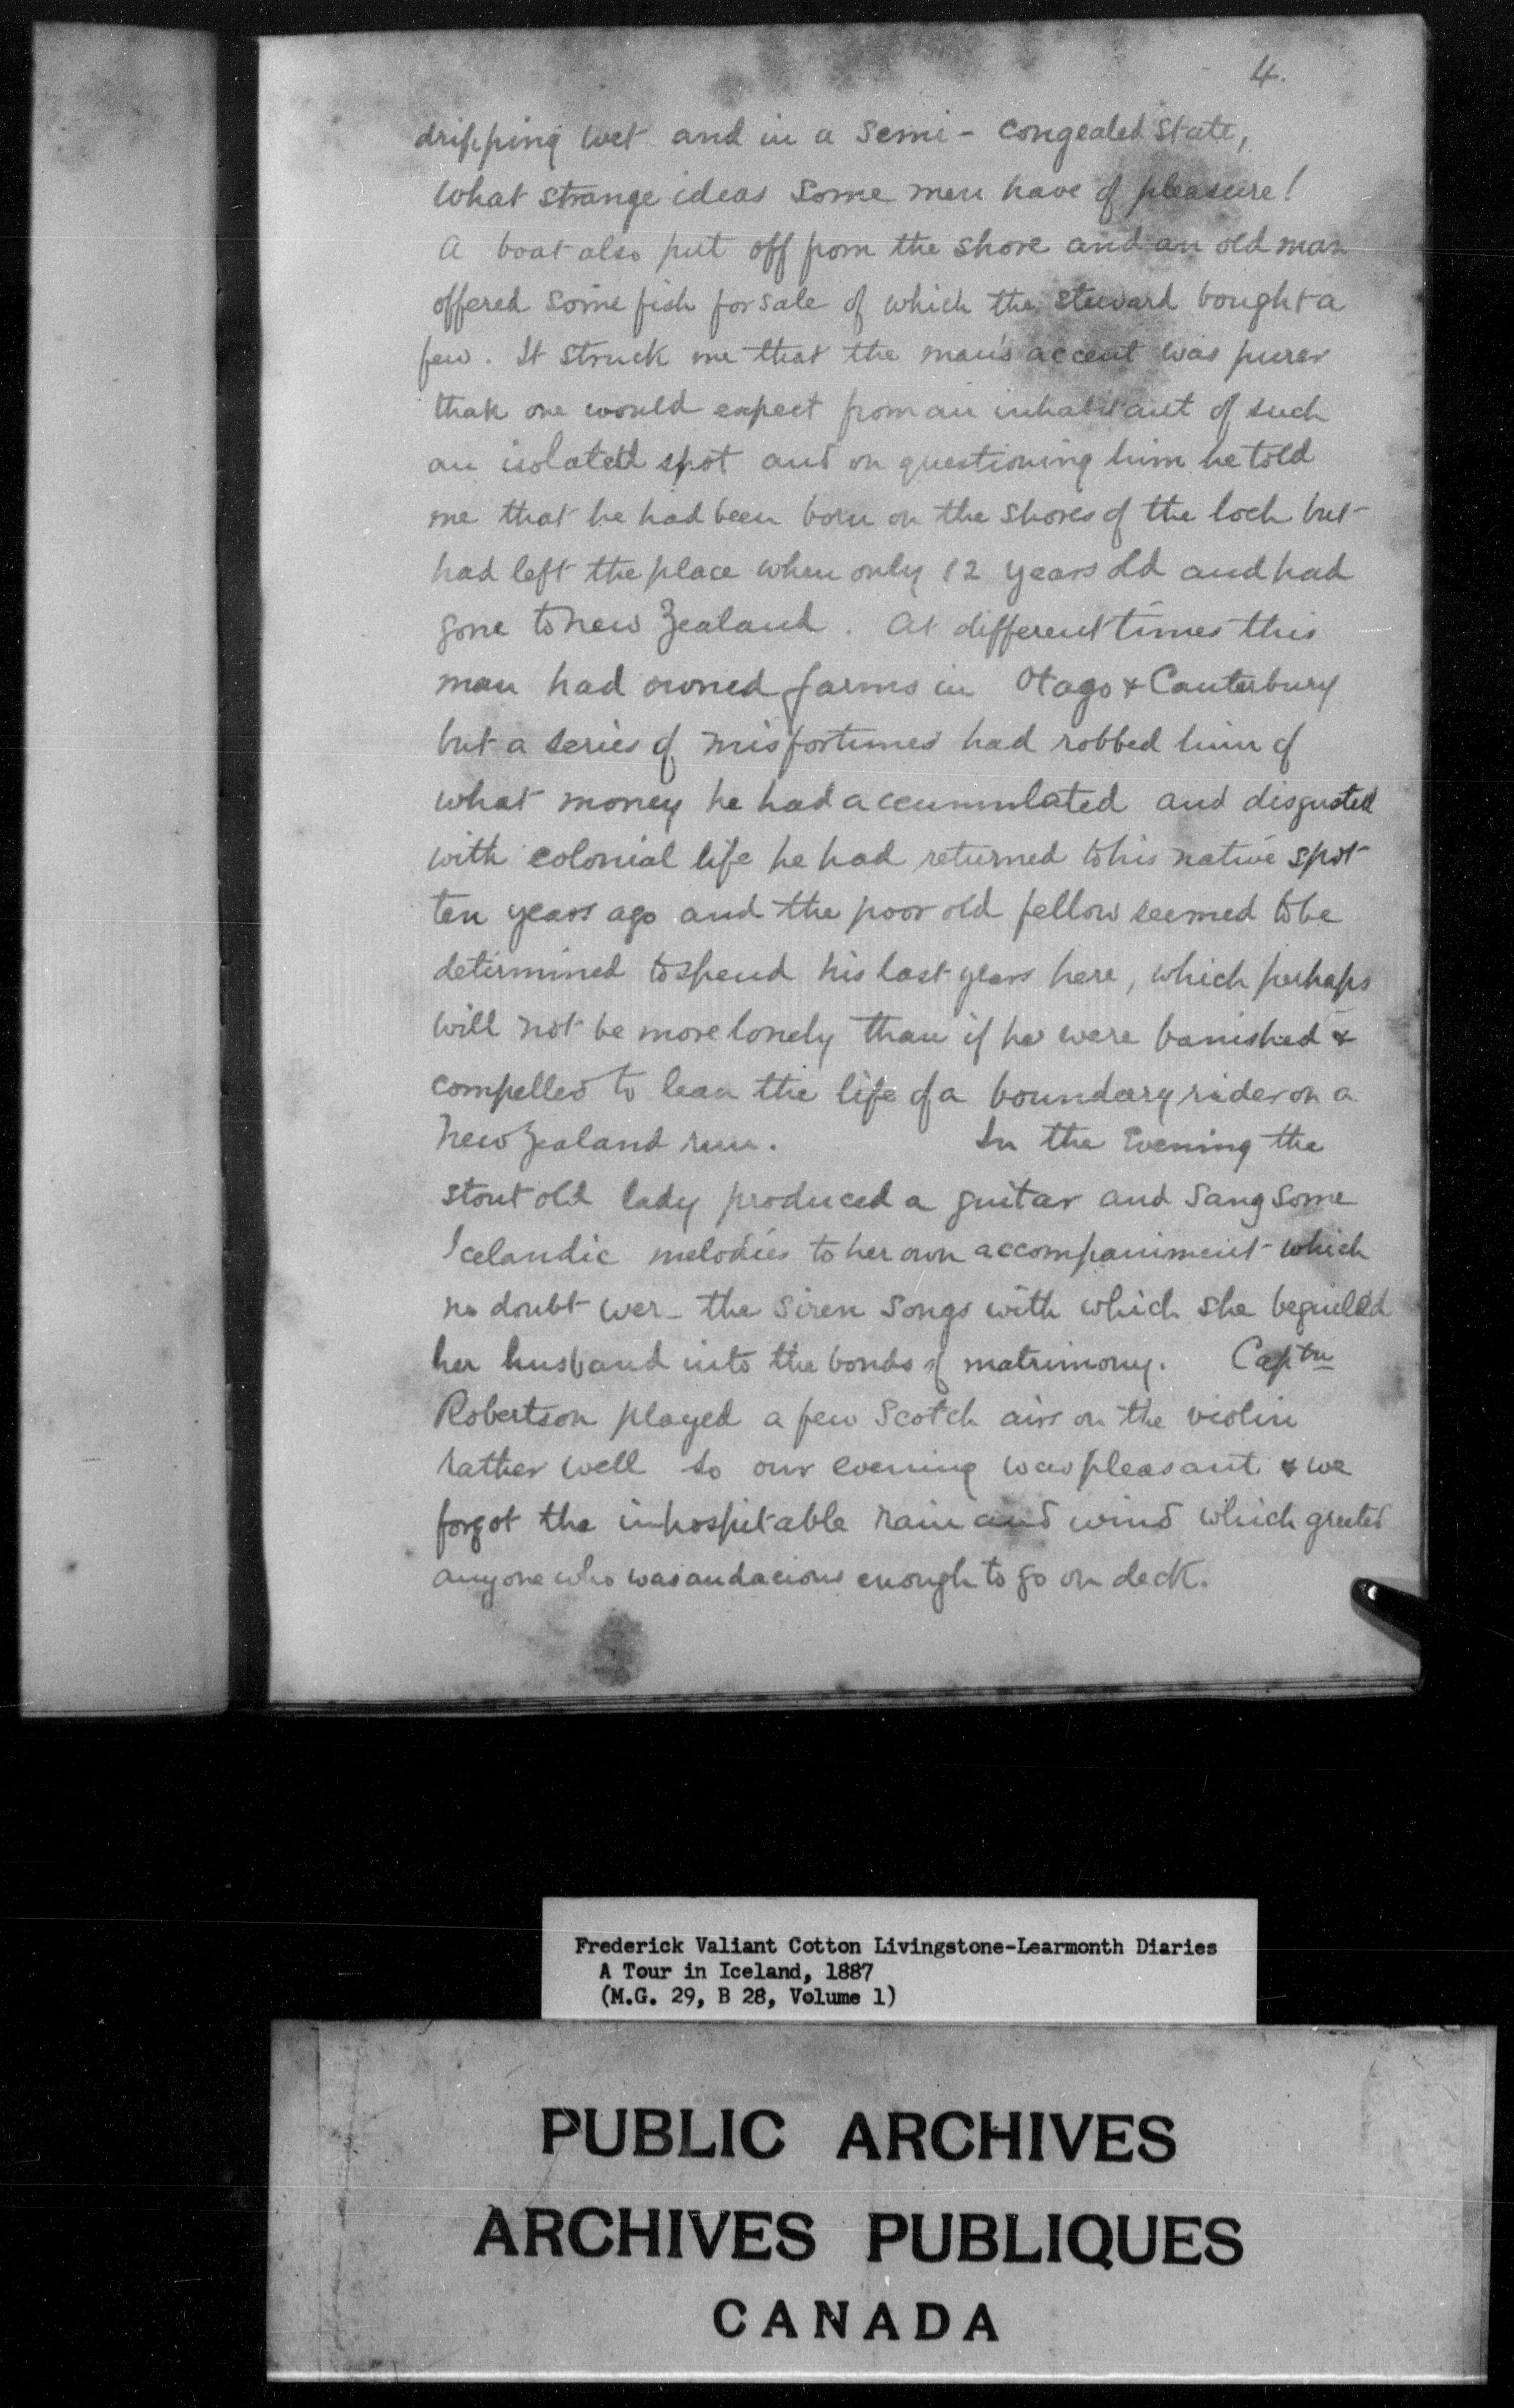 4.
dripping wet and in a semi - congealed state,
What strange ideas some men have of pleasure!
A boat also put off from the shore and an old man
offered some fish for sale of which the steward bought a
few. It struck me that the man's accent was purer
than one would expect from an inhabitant of such
an isolated spot and on questioning him he told
me that he had been born on the shores of the loch but
had left the place when only 12 years old and had
gone to New Zealand. At different times this
man had owned farms in Otago & Canterbury
but a series of misfortunes had robbed him of
what money he had accummulated and disgusted
with colonial life he had returned to his native spot
ten years ago and the poor old fellow seemed to be
determined to spend his last years here, which perhaps
will not be more lonely than if he were banished &
compelled to lead the life of a boundary rider on a
New Zealand run. In the Evening the
stout old lady produced a guitar and sang some
Icelandic melodies to her own accompaniment which
no doubt wer_ the siren songs with which she beguiled
her husband into the bonds of matrimony. Captn
Robertson played a few Scotch airs on the violin
rather well so our evening was pleasant & we
forgot the inhospitable rain and wind which greeted
anyone who was audacious enough to go on deck.
Frederick Valiant Cotton Livingstone-Learmonth Diaries
A Tour in Iceland, 1887
(M.G. 29, B 28, Volume 1)
PUBLIC ARCHIVES
ARCHIVES PUBLIQUES
CANADA